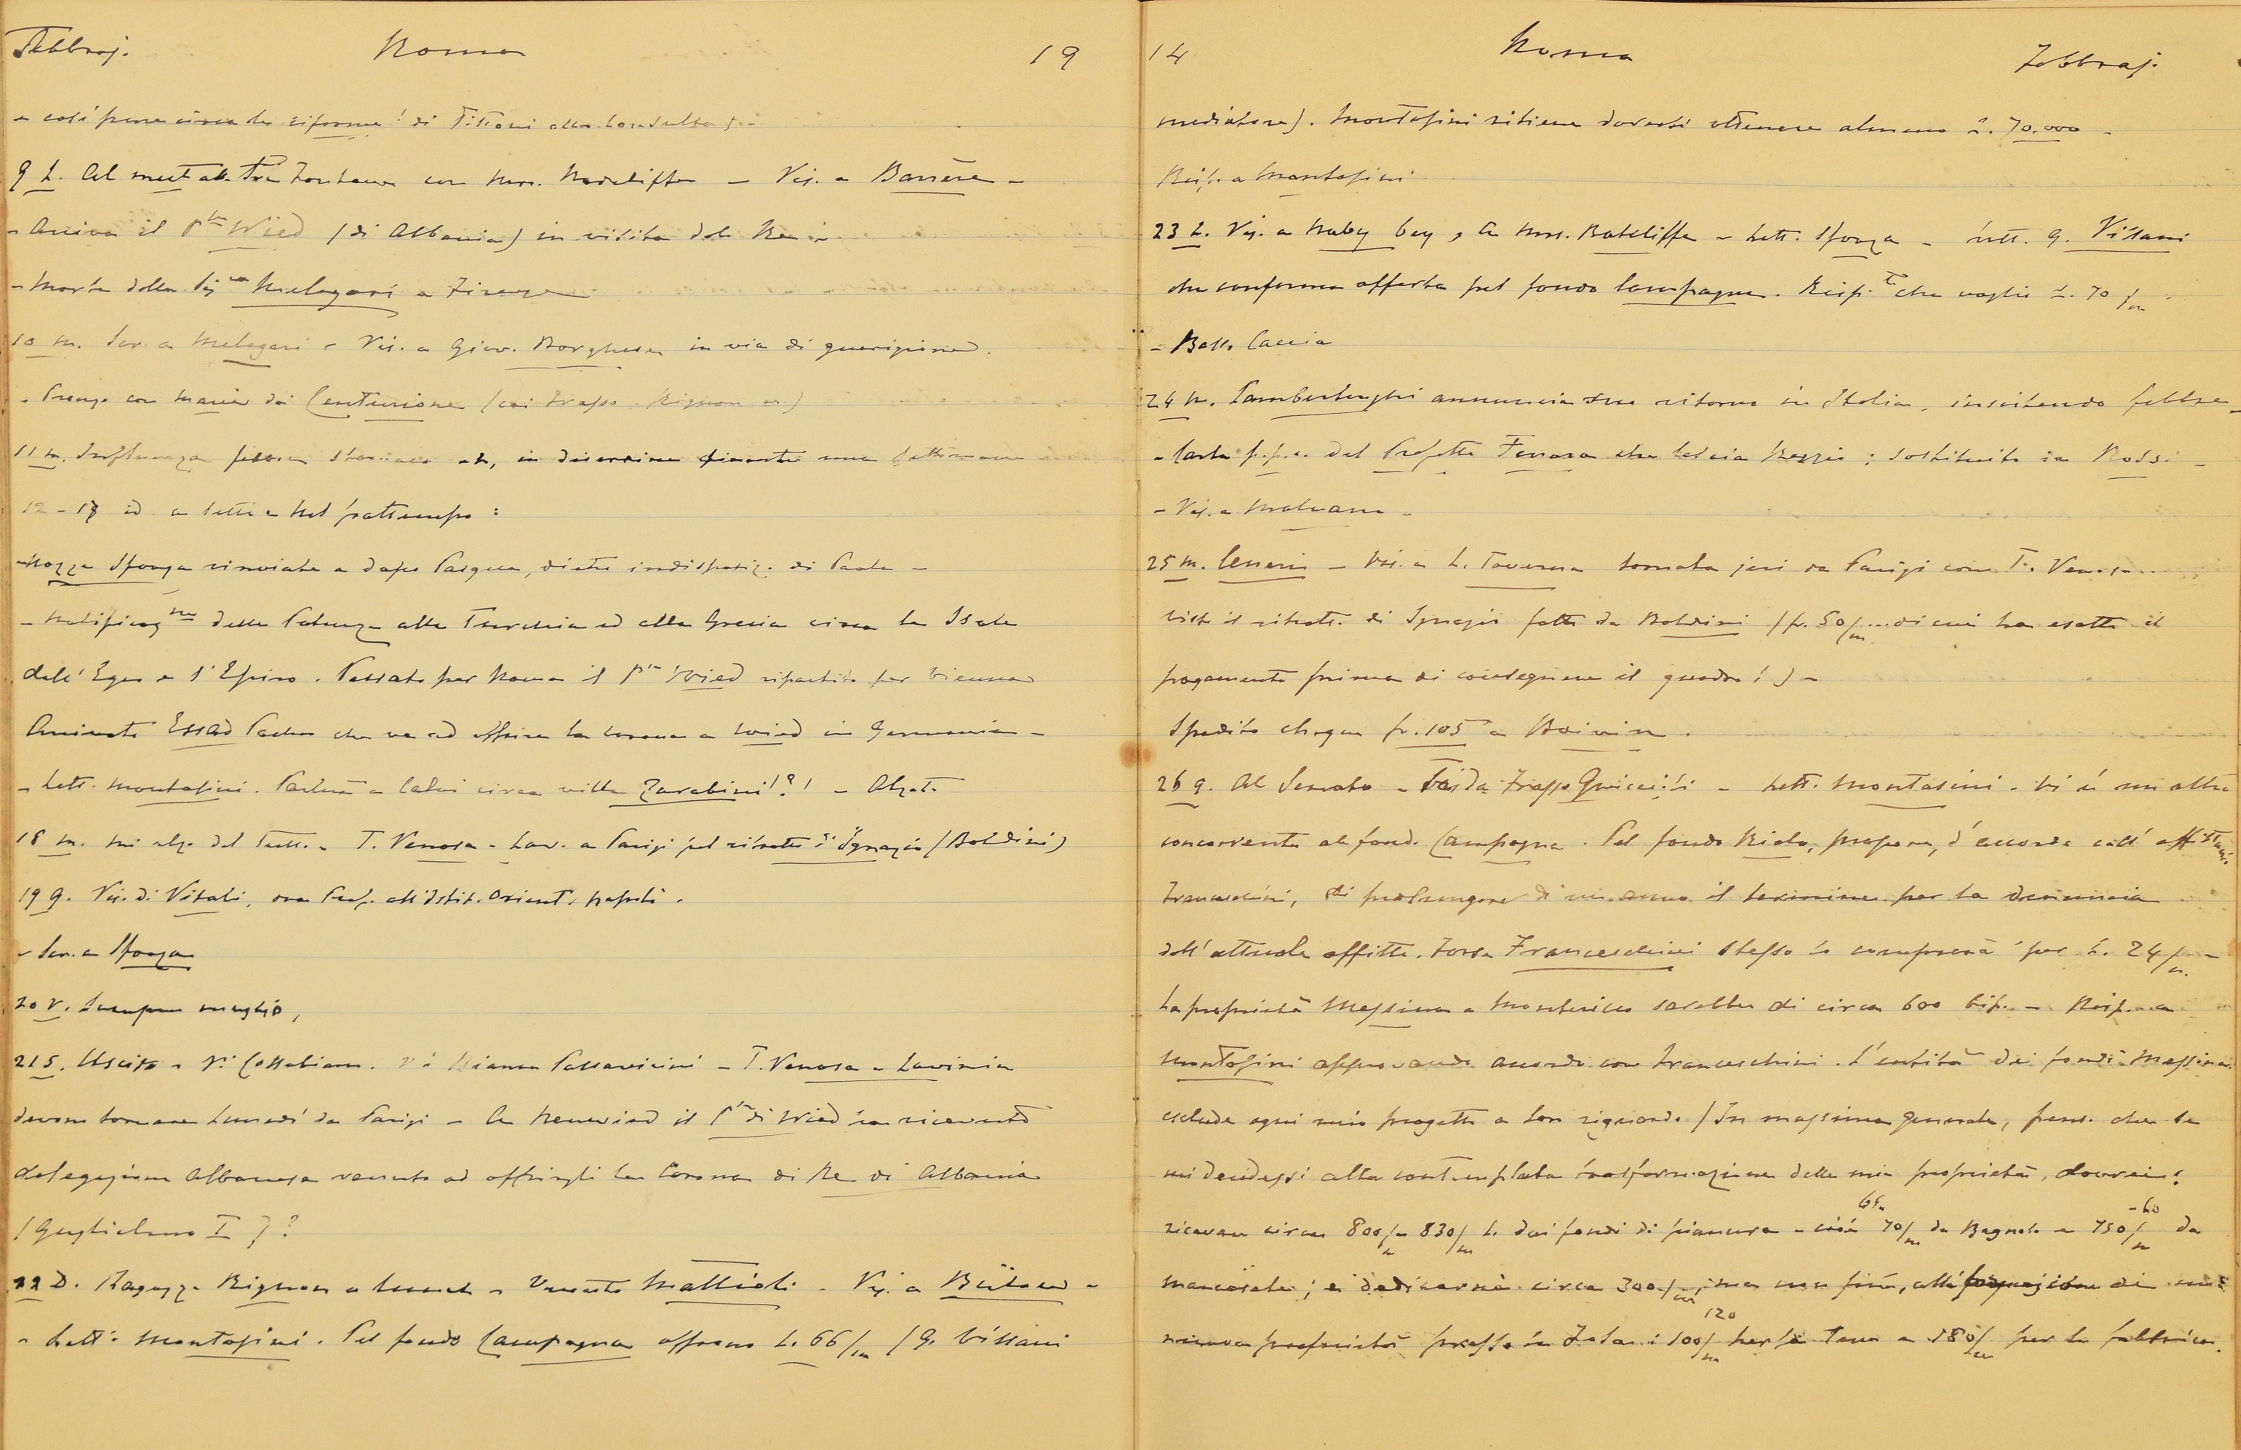 Febbraj. Roma 19
e così pure circa le riforme! di Tittoni alla Consulta
9 L. Al meet alle Tre Fontane con Mrs. Radcliffe – Vis. a Barrère –
– Arriva il Pce Wied (di Albania) in visita dal Re –
– Morte della Sigra Melegari a Firenze
10 M. Scr. a Melegari – Vis. a Giov. Borghese in via di guarigione.
– Pranzo con Maria dai Centurione (coi Frasso, Rignon)
11 M. Influenza febbre stomaco etc, in diversione durante una settimana
12–17 id a letto – Nel frattempo:
– Nozze Sforza rinviate a dopo Pasqua, dietro indisposiz. di Paola –
– Notificazne delle Potenze alla Turchia ed alla Grecia circa le Isole
dell'Egeo e l'Epiro. Passato per Roma il Pce Wied ripartito per Vienna
Arrivato Essad Pacha che va ad offrire la corona a Wied in Germania –
– Lett. Montasini. Parlerà a Calvi circa villa Zarabini!?! – Alzato
18 M. Mi alzo del tutto – T. Venosa – Lav. a Parigi pel ritratto di Ignazio (Boldini)
19 G. Vis. di Vitali, ora Prof. all'Istit. Orient. Napoli.
– Scr. a Sforza
20 V. Sempre meglio,
21 S. Uscito – Vi Bianca Pallavicini – T. Venosa e Lavinia
devono tornare Lunedì da Parigi – A Neuwied il Pce di Wied ha ricevuto
delegazione Albanese venuta ad offrirgli la Corona di Re di Albania
(Guglielmo I)?
22 D. Ragazze Rignon a lunch – Venuto Mattioli – Vis. a Bülow –
– Lett. Montasini. Pel fondo Campagna offrono L. 66/m (G. Villani
14 Roma Febbraj.
mediatore). Montasini ritiene doversi ottenere almeno L. 70.000 –
Risp. a Montasini
23 L. Vis. a Naby bey, a Mrs. Radcliffe – Lett. Sforza – Lett. G. Villani
che conferma offerta pel fondo Campagna. Risp. che voglio L. 70/m.
– Ballo Caccia
24 M. Lambertenghi annuncia suo ritorno in Italia, insistendo febbre –
– Carta p.p.c. del Prefetto Ferrara che lascia Reggio; sostituito da Rossi –
– Vis. a Malvano –
25 M. Ceneri – Vis. a L. Taverna tornata jeri da Parigi con T. Venosa.
Visto il ritratto di Ignazio fatto da Boldini (fr. 50/m... di cui ha esatto il
pagamento prima di consegnare il quadro!) –
Spedito cheque fr. 105 a Boivin.
26 G. Al Senato – Lett. Montasini – Vi è un altro
concorrente al fondo Campagna. Pel fondo Riolo, propone, d'accordo coll' affittuario
Franceschini, di prolungare di un anno il termine per la denuncia
dell'attuale affitto. Forse Franceschini stesso lo comprerà per L. 24/m –
La proprietà Messina a Montericco sarebbe di circa 600 bif. – Risp. a
Montasini approvando accordo con Franceschini. L'entità dei fondi Messina
esclude ogni mio progetto a loro riguardo (In massima generale, penso che se
mi decidessi alla contemplata trasformazione delle mie proprietà, dovrei
ricavare circa 800/m 830/m L. dai fondi di pianura – cioè 65 70/m da Bagnolo e 750/m –60 da
Mancasale; e dedicarne circa 300/m, ma non più, alla formazione di una
nuova proprietà presso la Zola: 100/m 120 per la terra e 180/m per la fabbrica.